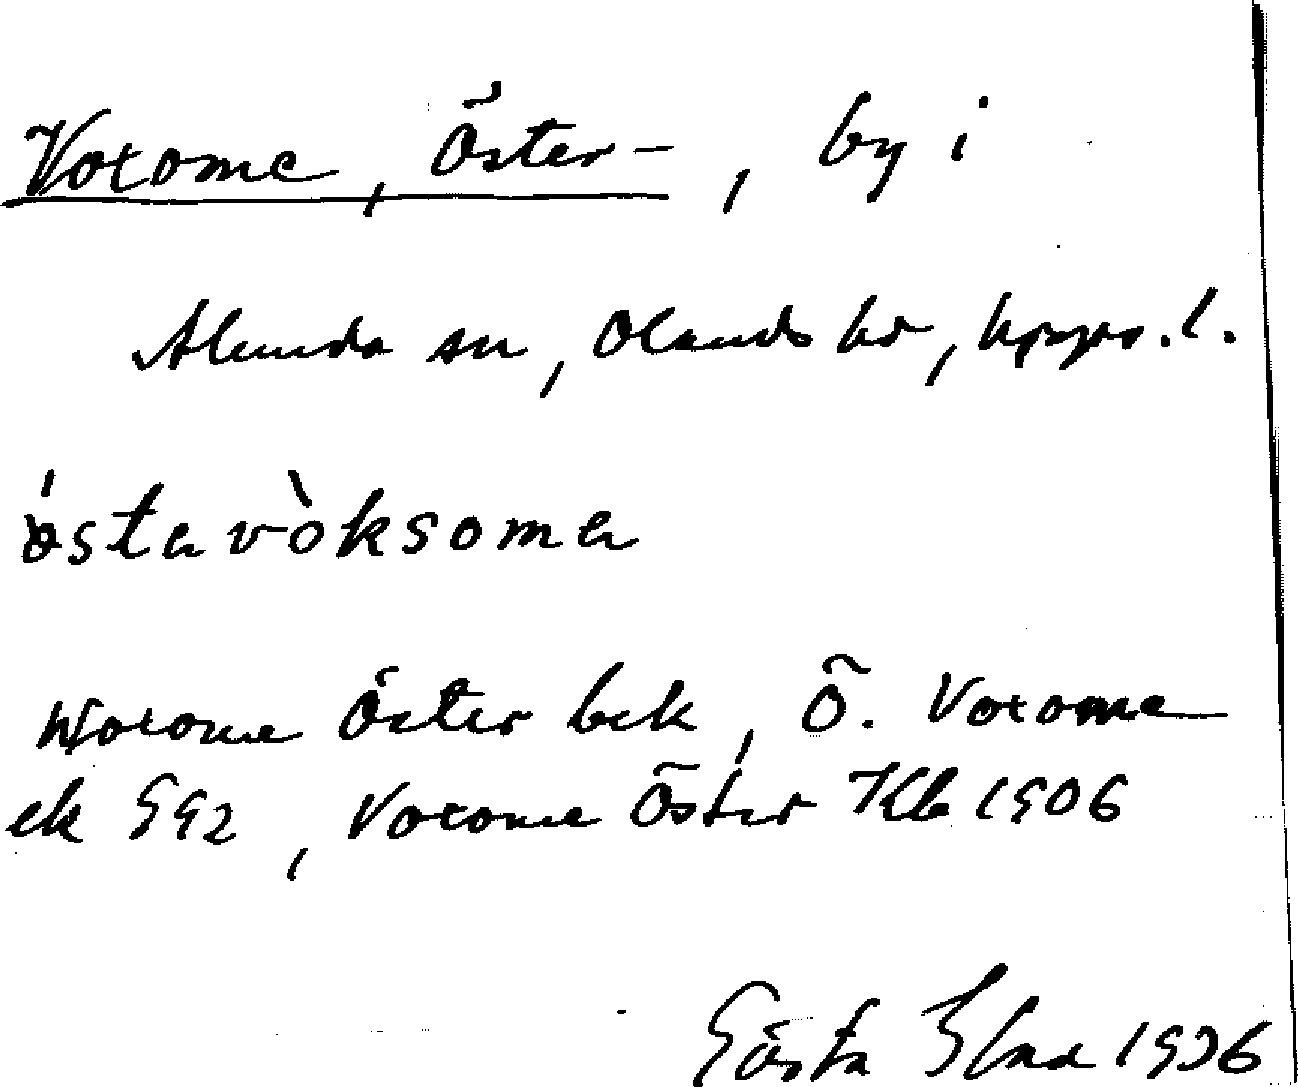 Voxome, Öster-, by i
Alunda sn, Olands hd, Upps. l.
östavòksoma
Woxome Öster bek, Ö. Voxome
ek 992, Voxome Öster Kb 1906
Gösta 1936